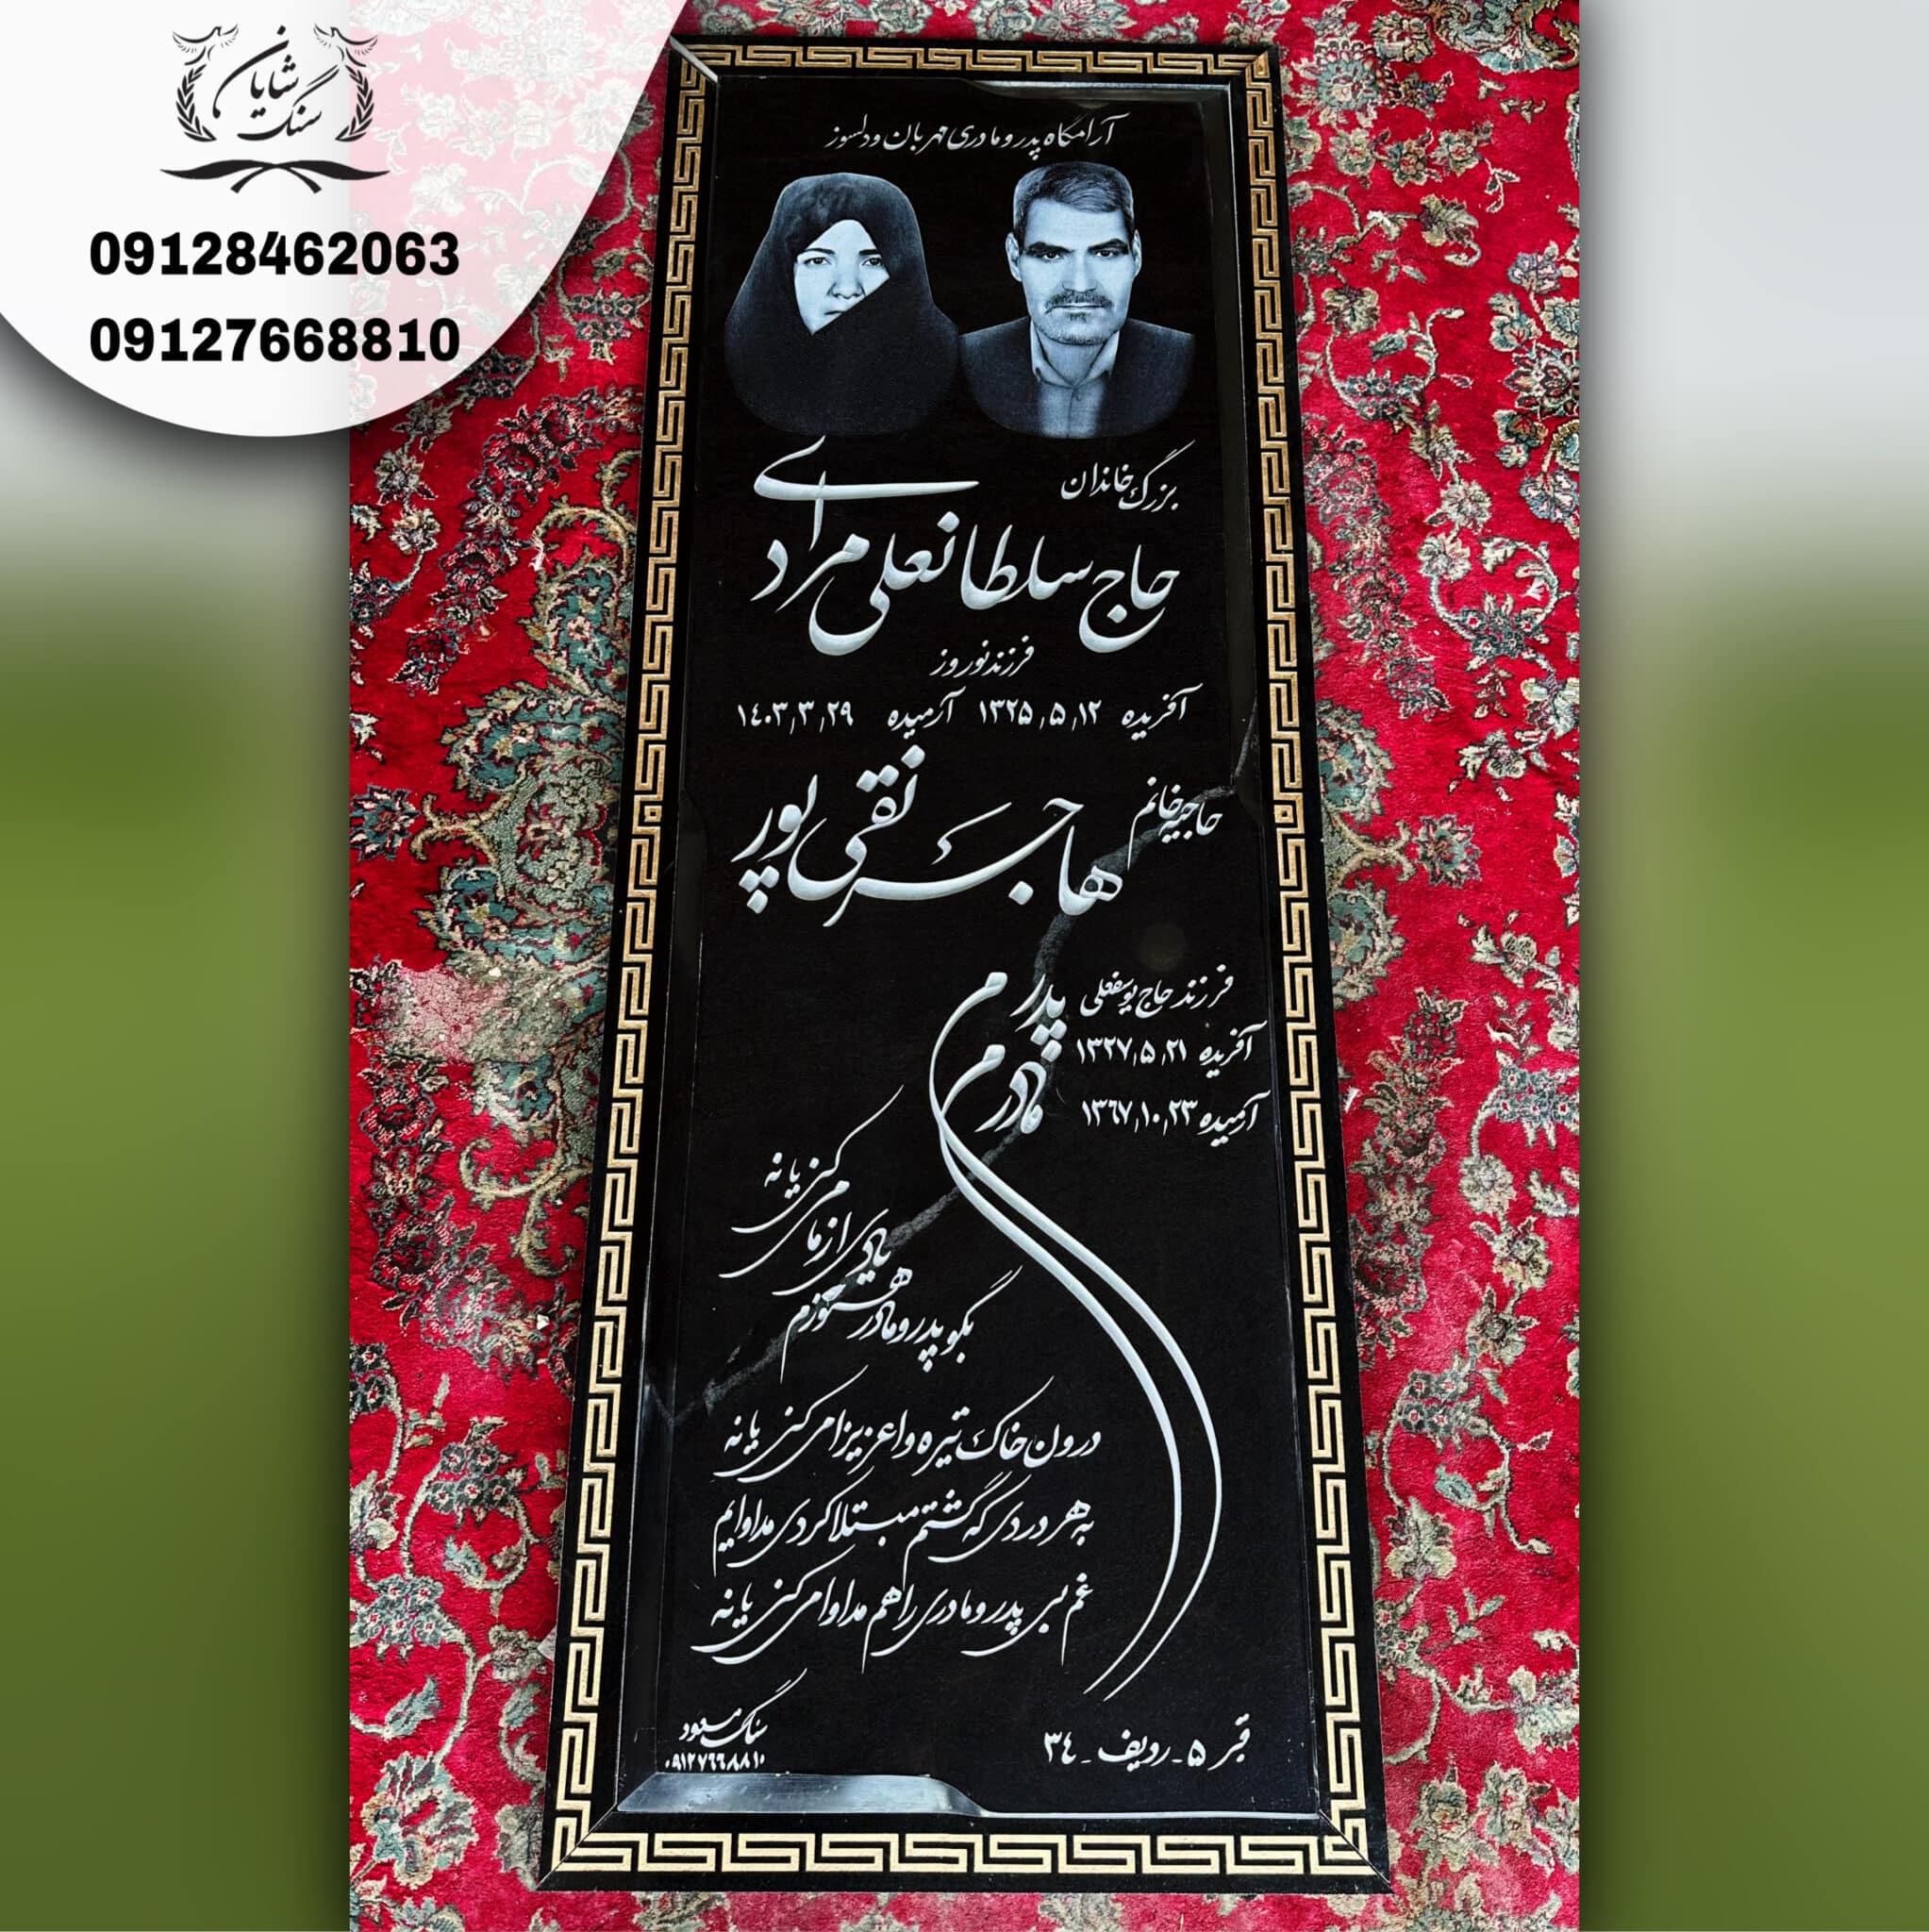 سنگ شایان
09128462063
09127668810
آرامگاه پدر و مادری مهربان و دلسوز
بزرگ خاندان
حاج سلطانعلی مرادی
فرزند نوروز
آفریده ۱۳۲۵٫۵٫۱۲ آرمیده ۱٤۰۳٫۳٫۲۹
حاجیه خانم
هاجر نقی پور
فرزند حاج یوسفعلی
آفریده ۱۳۲۷٫۵٫۲۱
آرمیده ۱۳٦۷٫۱۰٫۲۳
پدرم
مادرم
یادی از ما می کنی یا نه
بگو پدر و مادر هنوزم
درون خاک تیره واعزیزا می کنی یا نه
به هر دردی که گشتم مبتلا کردی مداوایم
غم بی پدر و مادری را هم مداوا می کنی یا نه
قبر ۵ - رویف - ۳٤
سنگ مسعود
۰۹۱۲۷٦٦۸۸۱۰